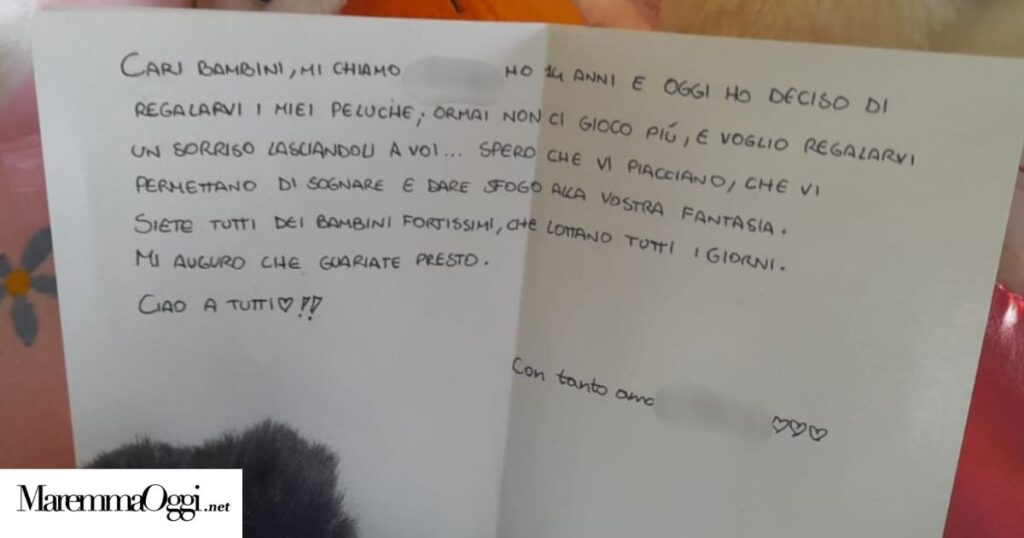 CARI BAMBINI, MI CHIAMO HO 14 ANNI E OGGI HO DECISO DI
REGALARVI I MIEI PELUCHE; ORMAI NON CI GIOCO PIÚ, E VOGLIO REGALARVI
UN SORRISO LASCIANDOLI A VOI... SPERO CHE VI PIACCIANO, CHE VI
PERMETTANO DI SOGNARE E DARE SFOGO ALLA VOSTRA FANTASIA.
SIETE TUTTI DEI BAMBINI FORTISSIMI, CHE LOTTANO TUTTI I GIORNI.
MI AUGURO CHE GUARIATE PRESTO.
CIAO A TUTTI♡!!
Con tanto amo ♡♡♡
MaremmaOggi.net